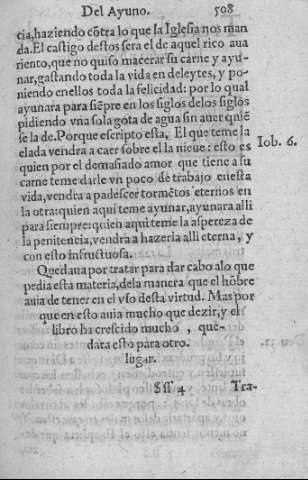 Del Ayuno. 508
cia,haziendo cõtra lo que la Iglesia nos man
da.El castigo destos sera el de aquel rico aua
riento,que no quiso macerar su carne y ayu-
nar,gastando toda la vida en deleytes, y po-
niendo enellos toda la felicidad: por lo qual
ayunara para siẽpre en los siglos delos siglos
pidiendo vna sola gota de agua sin auer quiẽ
se la de.Porque escripto esta, El que teme la
elada vendra a caer sobre el la nieue: esto es
Iob. 6.
quien por el demasiado amor que tiene a su
carne teme darle vn poco de trabajo enesta
vida,vendra a padescer tormẽtos eternos en
la otra:quien aqui teme ayunar,ayunara alli
para siempre:quien aqui teme la aspereza de
la penitencia,vendra a hazerla alli eterna, y
con esto infructuosa.
Quedaua por tratar para dar cabo alo que
pedia esta materia,dela manera que el hõbre
auia de tener en el vso desta virtud. Mas por
que en esto auia mucho que dezir,y el
libro ha crescido mucho , que-
dara esto para otro
lugar.
Sss 4 Tra-